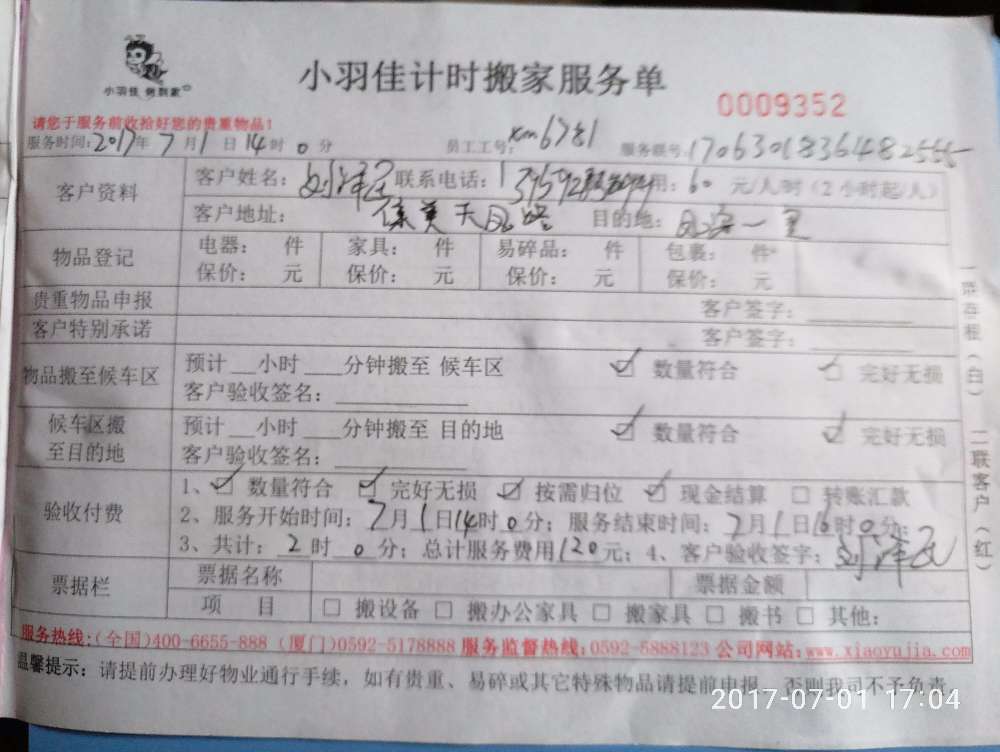 小羽佳 例到家
小羽佳计时搬家服务单
0009352
请您于服务前收拾好您的贵重物品!
服务时间:2017年7月1日14时0分 员工工号:xm6781 服务联号:
客户资料 客户姓名: 联系电话: 用:60元/人/时(2小时起/人)
客户地址: 集美天凤路 目的地:
物品登记 电器: 件 家具: 件 易碎品: 件 包裹: 件
保价: 元 保价: 元 保价: 元 保价: 元
贵重物品申报 客户签字:
客户特别承诺 客户签字:
物品搬至候车区 预计__小时___分钟搬至 候车区 ☑ 数量符合 ☑ 完好无损
客户验收签名:
候车区搬至目的地 预计__小时___分钟搬至 目的地 ☑ 数量符合 ☑ 完好无损
客户验收签名:
验收付费 1、☑ 数量符合 ☑ 完好无损 ☑ 按需归位 ☑ 现金结算 □ 转账汇款
2、服务开始时间:7月1日14时0分;服务结束时间:7月1日16时0分;
3、共计:2时0分;总计服务费用120元;4、客户验收签字:
票据栏 票据名称 票据金额
项 目 □ 搬设备 □ 搬办公家具 □ 搬家具 □ 搬书 □ 其他:
服务热线:(全国)400-6655-888 (厦门)0592-5178888 服务监督热线:0592-5888123 公司网站:www.xiaoyujia.com
温馨提示:请提前办理好物业通行手续,如有贵重、易碎或其它特殊物品请提前申报,否则我司不予负责
一联存根(白) 二联客户(红)
2017-07-01 17:04